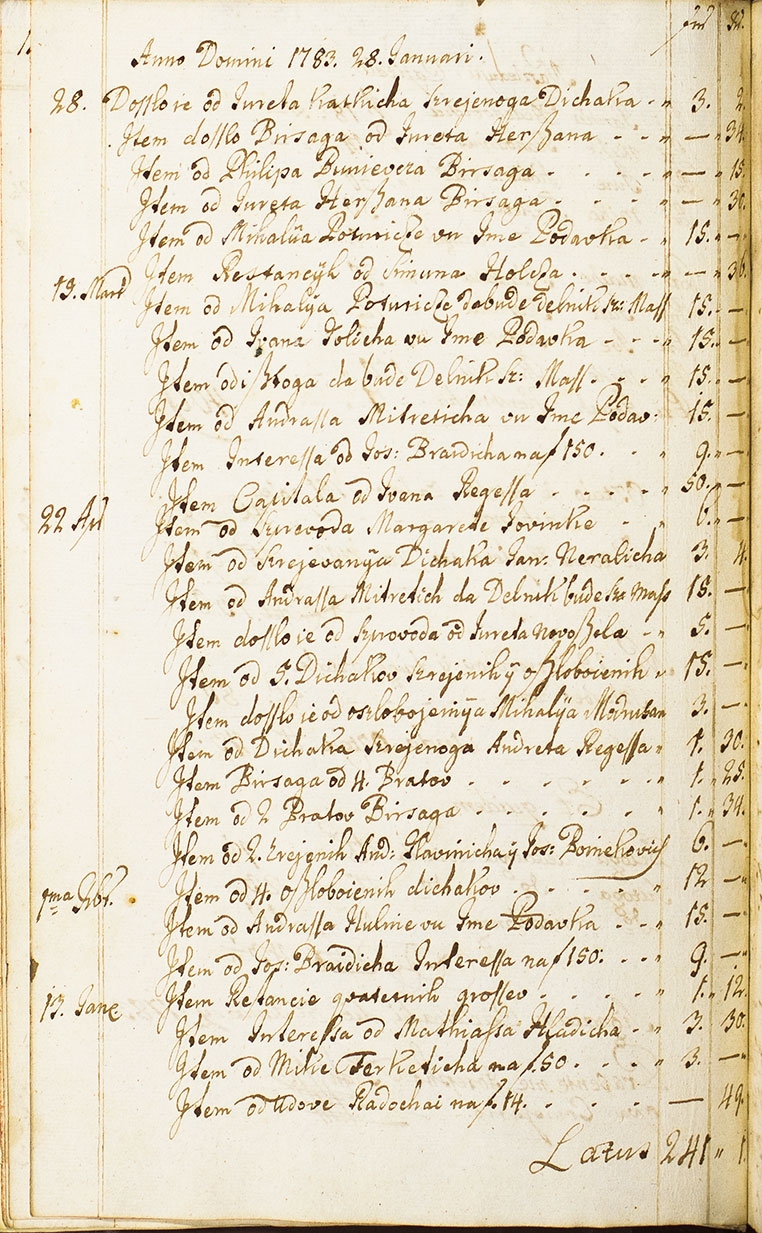 1.
Anno Domini 1783. 28. Januari.
28. Dossloie od Jureta Katkicha Krejenoga Dichaka - " 3. 2.
Item dosslo Birsaga od Jureta Herßana - - " — " 34.
Item od Philipa Bunievcza Birsaga - - - " — " 15
Item od Jureta Herßana Birsaga - - - " — " 30.
Item od Mihalÿa Poturicße vu Ime Podavka - " 15. " —
Item Restancÿh od Simuna - - - " — " 36.
19. Mart Item od Mihalÿa Poturicße dabude Delnik Sz: Mass 15. —
Item od Ivana Jolicha vu Ime Podavka - - " 15. —
Item od ißtoga da bude Delnik Sz: Mass - - 15. —
Item od Andrassa Mitreticha vu Ime Podav: 15. —
Item Interessa od Jos: Braidicha na f 150. - " 9. " —
Item Capitala od Ivana Regessa - - - " 50. " —
22 Apl Item od Margarete Jovinke - " 6. " —
Item od Dichaka Jan: Neralicha 3. 4.
Item od Andrassa Mitretich da Delnik bude Sz: Mass 15. —
Item dossloie od od Jureta Novoßela - " 5. —
Item od 5. Dichakov Krejenih ÿ oßloboienih " 15. —
Item dossloie od Mihalÿa Modrussan 3. —
Item od Dichaka Krejenoga Andreta Regessa " 1. 30.
Item Birsaga od 4. Bratov - - - - " 1. " 25.
Item od 2 Bratov Birsaga - - - - 1. " 34.
Item od 2. And: ÿ Jos: 6. —
Item od 4. oßloboienih dichakov - - - " 12 — "
Item od Andrassa Hulnie vu Ime Podavka - - " 15. — "
Item od Jos: Braidicha Interessa na f 150: - - " 9. — "
13. Item Retancie qvaternih grossev - - - " 1. " 12.
Item Interessa od Mathiassa Hladicha - " 3. 30.
Item od Mike Ferketicha na f. 50 - - - " 3. — "
Item od Udove Radochai na f. 14. - - - — 49.
Latus 241 " 1.